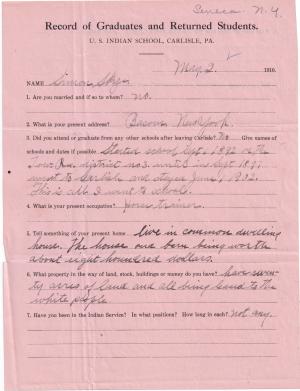 Seneca N.Y.
Record of Graduates and Returned Students.
U. S. INDIAN SCHOOL, CARLISLE, PA.
May 2 1910.
NAME Simon
1. Are you married and if so to whom? no.
2. What is your present address? New York
3. Did you attend or graduate from any other schools after leaving Carlisle? No Give names
of schools and dates if possible. school Sept. 1892 in the
district no 3. until in Sept 1897
went to Carlisle and June, 1902.
This is all I went to school.
4. What is your present occupation? trainer
5. Tell something of your present home live in common dwelling
house. The house one barn being worth
about eight houndred dollars.
6. What property in the way of land, stock, buildings or money do you have? have
ty acres of land and all being to the
white people
7. Have you been in the Indian Service? In what positions? How long in each? not any.